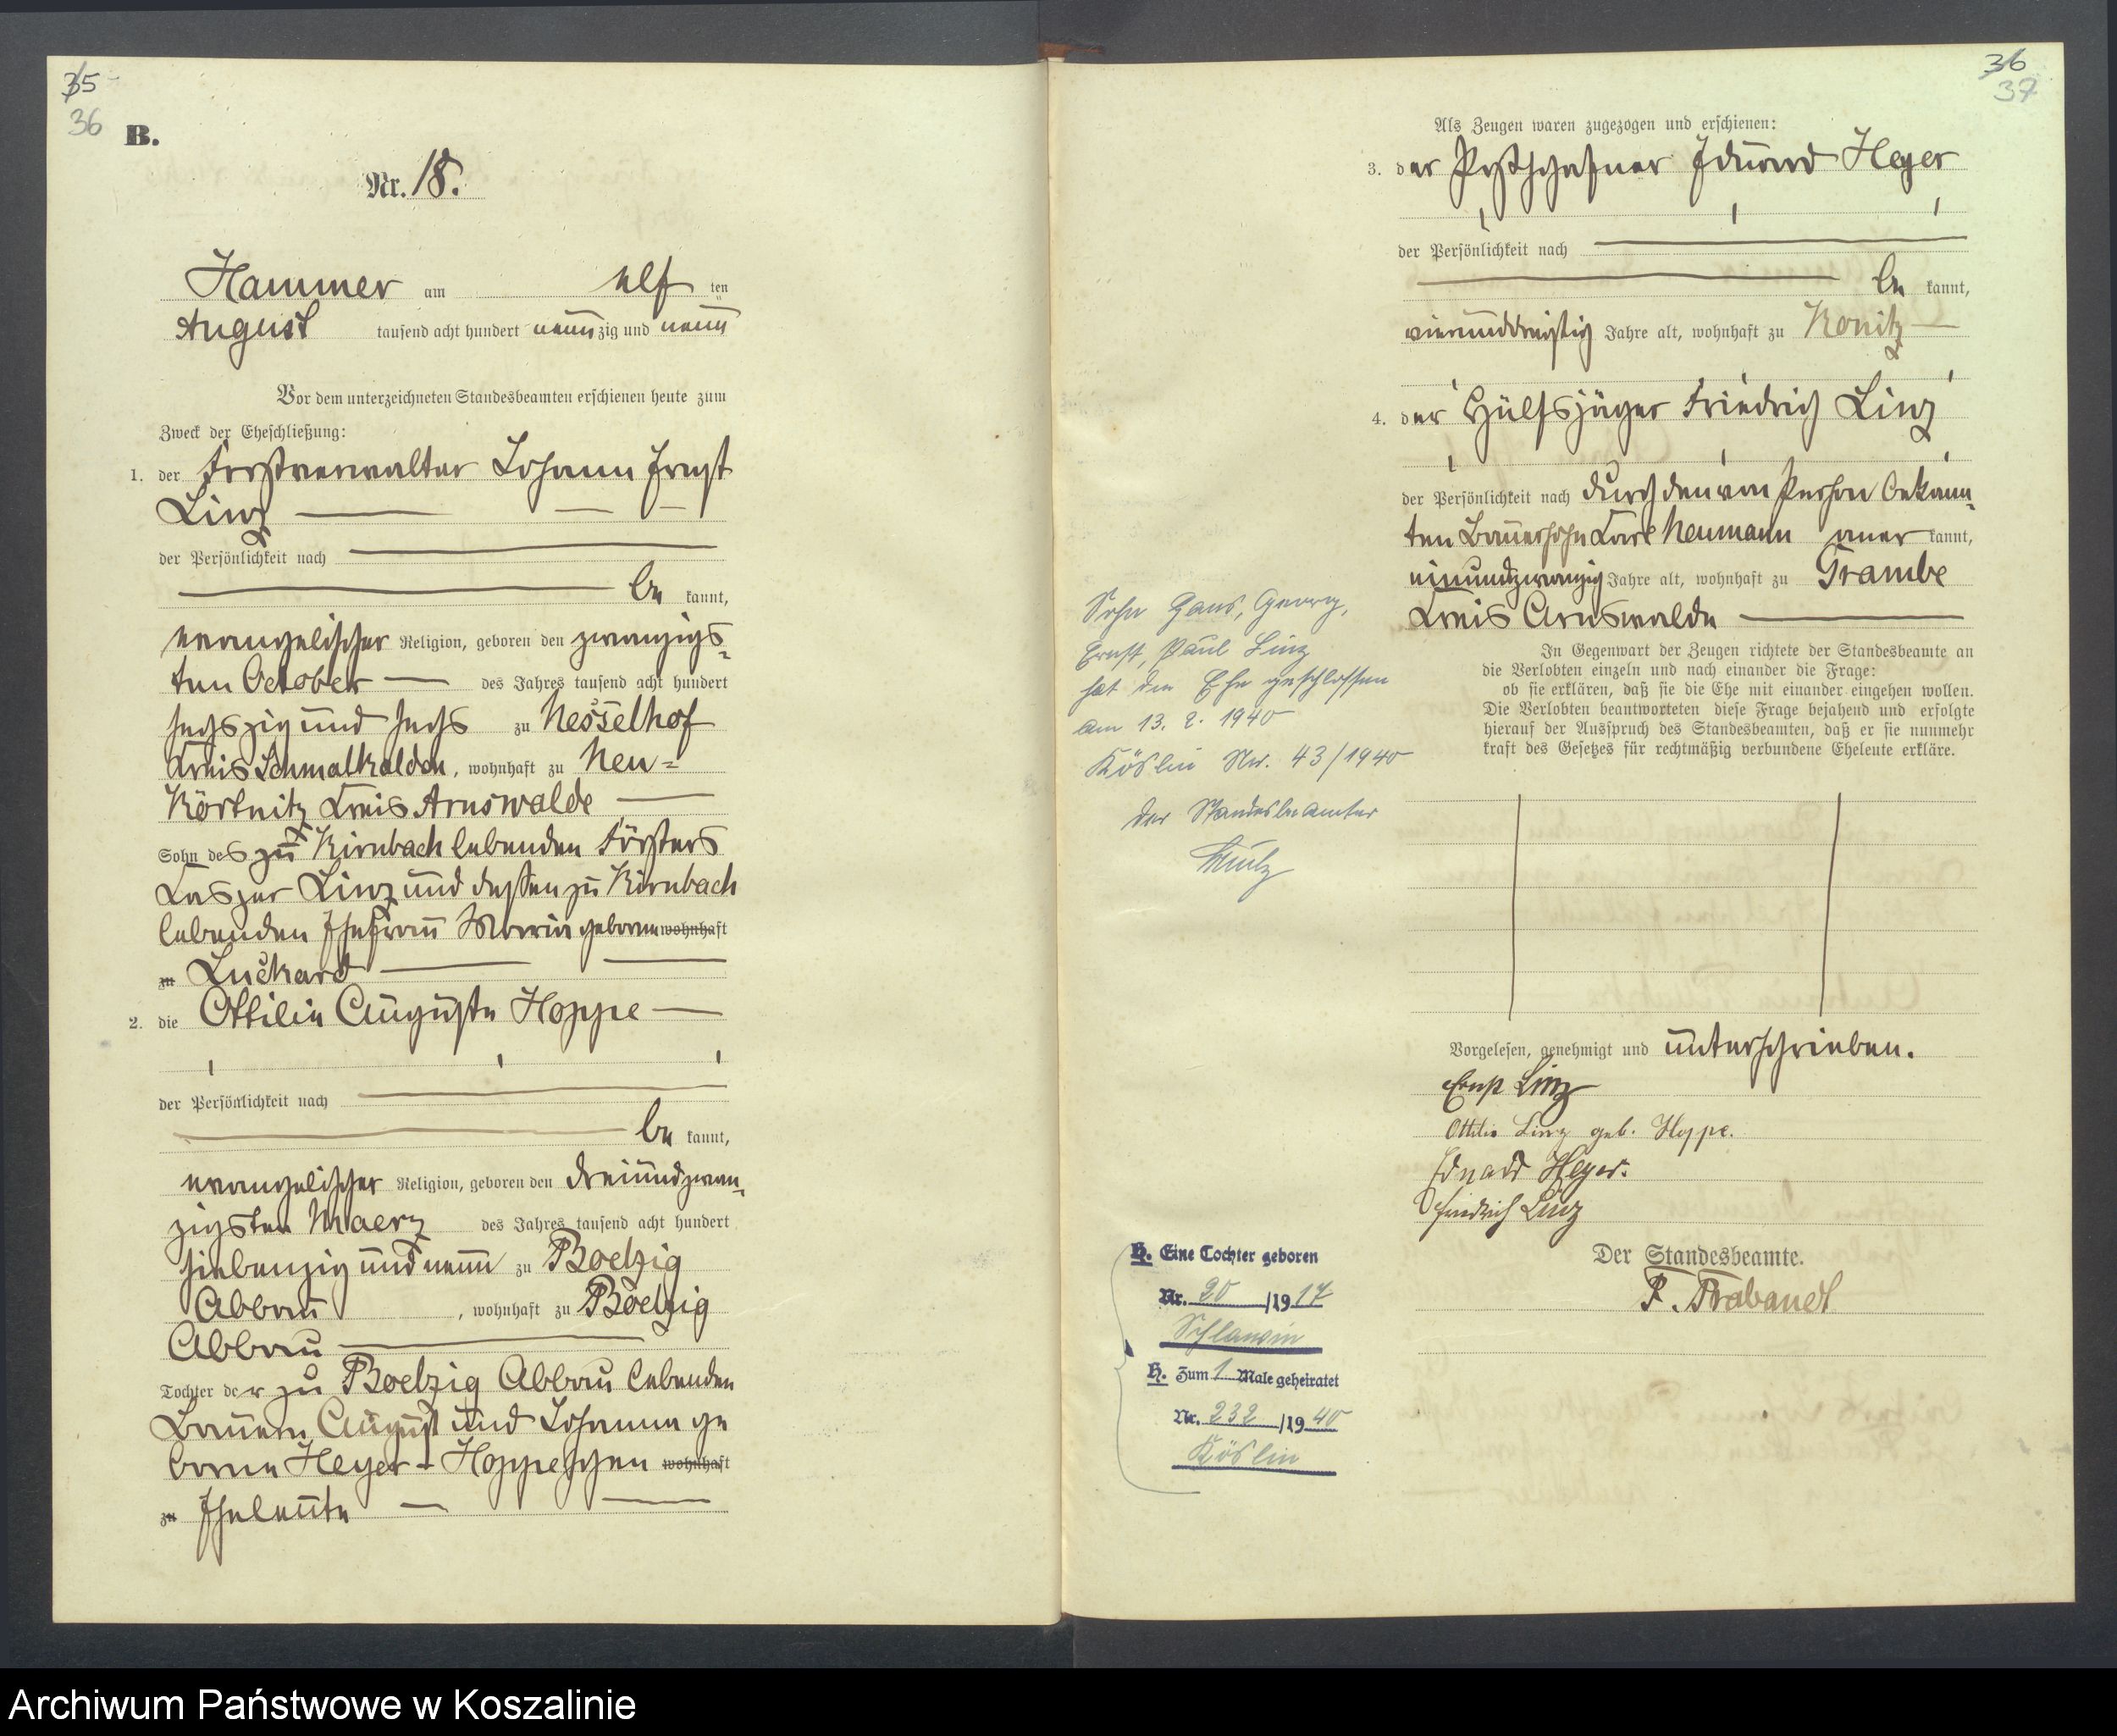 35
36
B.
Nr. 18.
Hammer am elf ten
August tausend acht hundert neunzig und neun
Vor dem unterzeichneten Standesbeamten erschienen heute zum
Zweck der Eheschließung:
1. der Forstverwalter Johann Ernst
Linz
der Persönlichkeit nach
be kannt,
evangelischer Religion, geboren den zwanzigs-
ten October des Jahres tausend acht hundert
sechszig und sechs zu Nesselhof
Kreis Schmalkalden, wohnhaft zu Neu=
Körtnitz Kreis Arnswalde
Sohn des zu Kirnbach lebenden Försters
Caspar Linz und dessen zu Kirnbach
lebenden Ehefrau Maria geborene wohnhaft
zu Luckard
2. die Ottilie Auguste Hoppe
der Persönlichkeit nach
be kannt,
evangelischer Religion, geboren den dreiundzwan-
zigsten Maerz des Jahres tausend acht hundert
siebenzig und neun zu Boelzig
Abbau, wohnhaft zu Boelzig
Abbau
Tochter der zu Boelzig Abbau lebenden
Bauern August und Johanna ge
borene Heyer - Hoppeschen wohnhaft
zu Eheleute
36
37
Als Zeugen waren zugezogen und erschienen:
3. der Postschafner Eduard Heyer
der Persönlichkeit nach
be kannt,
vierunddreißig Jahre alt, wohnhaft zu Konitz
4. der Hülfsjäger Friedrich Linz
der Persönlichkeit nach durch den von Person bekann-
ten Bauersohn Carl Neumann aner kannt,
einundzwanzig Jahre alt, wohnhaft zu Grambe
Kreis Arnswalde
In Gegenwart der Zeugen richtete der Standesbeamte an
die Verlobten einzeln und nach einander die Frage:
ob sie erklären, daß sie die Ehe mit einander eingehen wollen.
Die Verlobten beantworteten diese Frage bejahend und erfolgte
hierauf der Ausspruch des Standesbeamten, daß er sie nunmehr
kraft des Gesetzes für rechtmäßig verbundene Eheleute erkläre.
Vorgelesen, genehmigt und unterschrieben.
Ernst Linz
Ottilie Linz geb. Hoppe.
Eduard Heyer.
Friedrich Linz
Der Standesbeamte.
P. Brabandt
Sohn Hans, Georg,
Ernst, Paul Linz
hat die Ehe geschlossen
am 13. 2. 1940
Köslin Nr. 43/1940
Der Standesbeamte
H. Eine Tochter geboren
Nr. 20 /1917
Schlawin
H. Zum 1 Male geheiratet
Nr. 232 /1940
Köslin
Archiwum Państwowe w Koszalinie